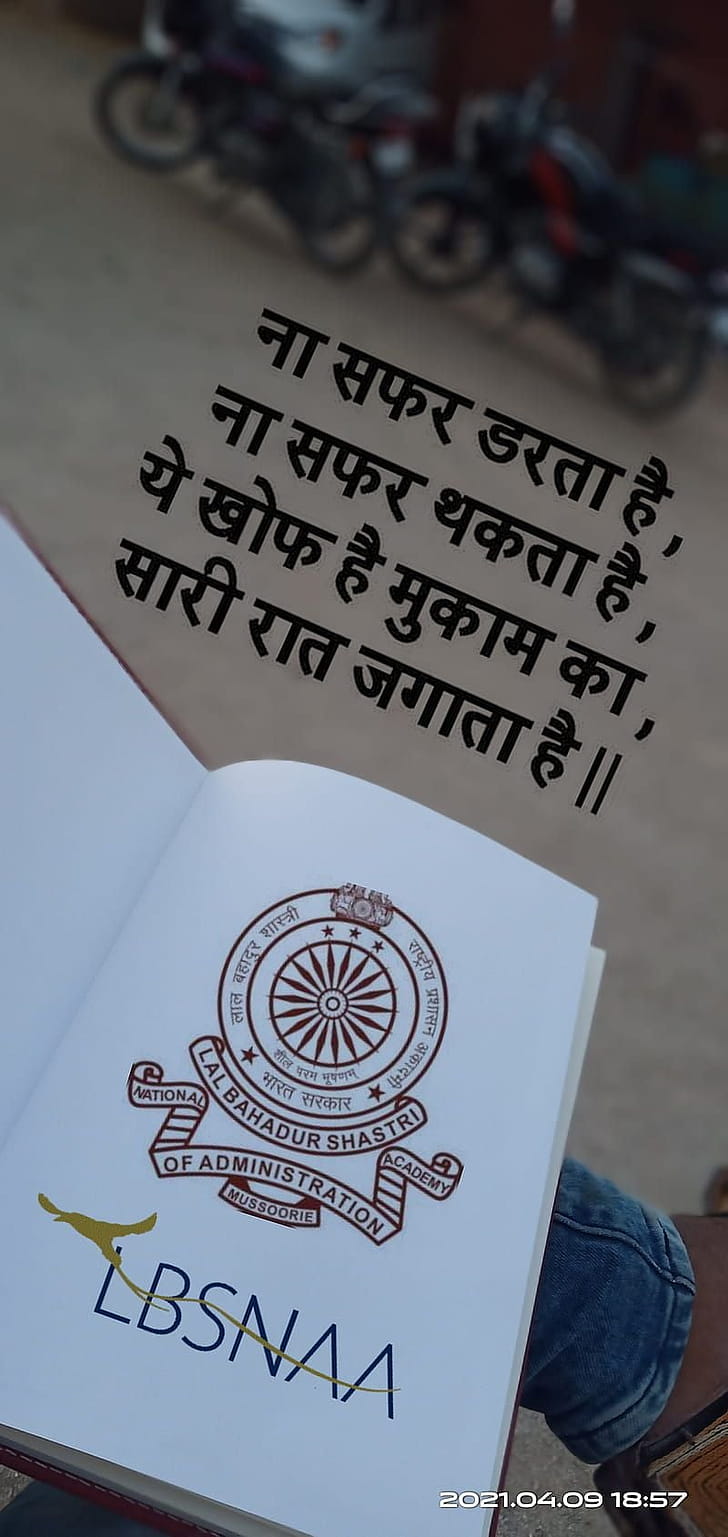 ना सफर डरता है,
ना सफर थकता है,
ये खोफ है मुकाम का,
सारी रात जगाता है ||
लाल बहादुर शास्त्री राष्ट्रीय प्रशासन अकादमी
शीलं परम भूषणम्
भारत सरकार
LAL BAHADUR SHASTRI
NATIONAL
ACADEMY
OF ADMINISTRATION
MUSSOORIE
LBSNAA
2021.04.09 18:57